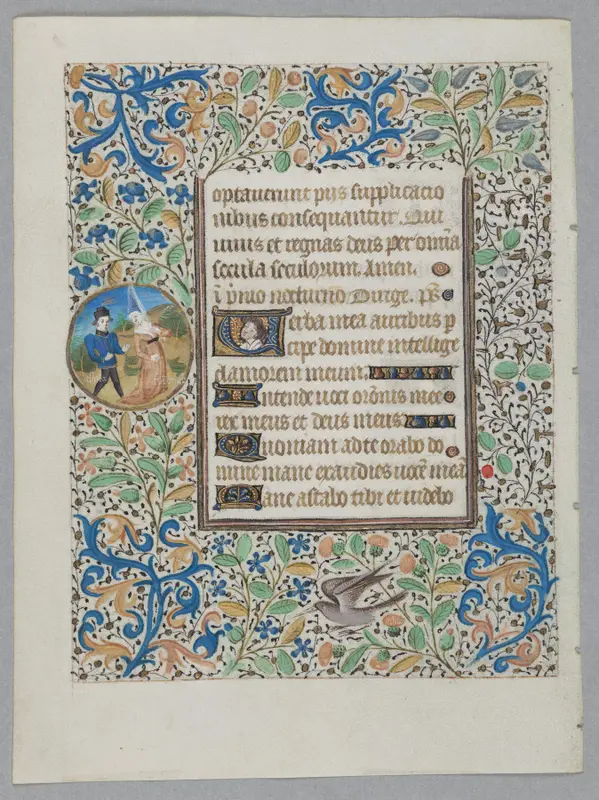 optaverunt pijs supplicatio
nibus consequantur. Qui
vivis et regnas deus per omnia
secula seculorum. Amen.
i pmo nocturno Dirge. ps
Verba mea auribus p
cipe domine intellige
clamorem meum
Intende voci orōnis mee
rex meus et deus meus
Quoniam ad te orabo do
mine mane exaudies vocē mea
Mane astabo tibi et videbo